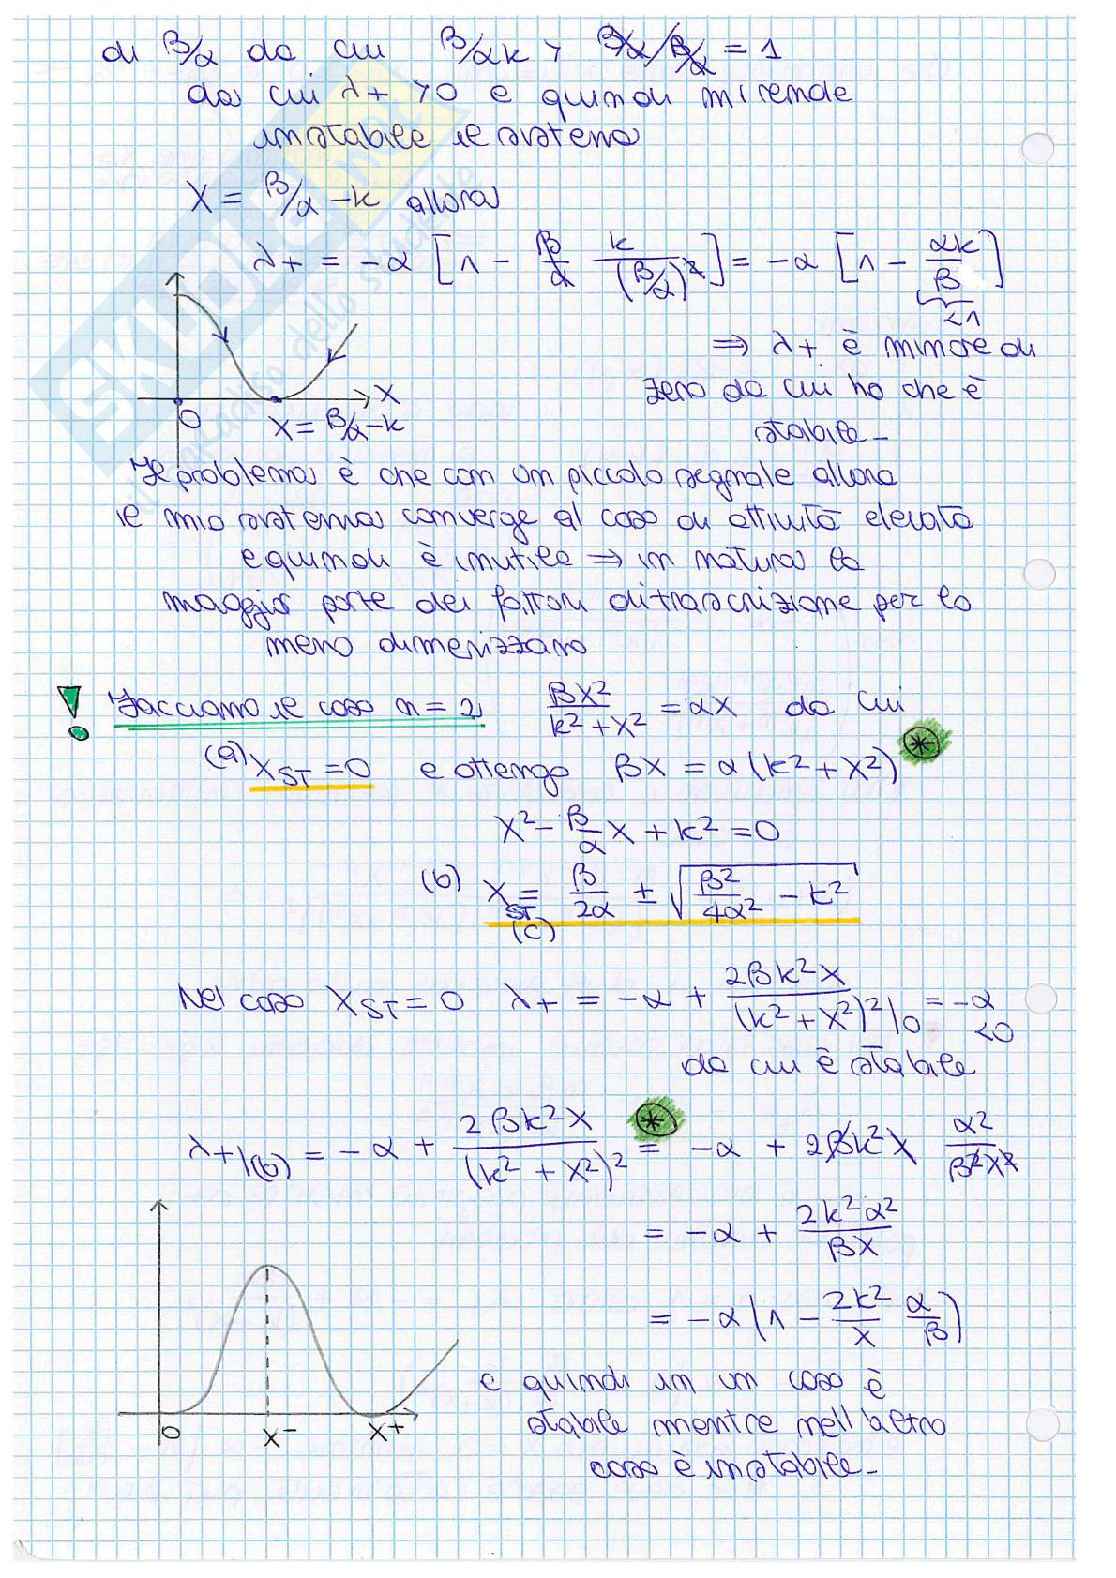 di β/α da cui β/αk > β/α/β/α = 1
da cui λ+ >0 e quindi mi rende
instabile il sistema
X = β/α - k allora
λ+ = -α [1 - β/α k/(β/α)²] = -α [1 - αk/β]
<1
⇒ λ+ è minore di
zero da cui ho che è
stabile_
X
0
X = β/α - k
Il problema è che con un piccolo segnale allora
il mio sistema converge al caso di attività elevata
e quindi è inutile ⇒ in natura la
maggior parte dei fattori di trascrizione per lo
meno dimerizzano
! Facciamo il caso n = 2 βX²/k²+X² = αX da cui
(a) X_ST = 0 e ottengo βX = α(k²+X²) *
X² - β/α X + k² = 0
(b) X_ST = β/2α ± √β²/4α² - k²
(c)
Nel caso X_ST = 0 λ+ = -α + 2βk²X/(k²+X²)²|0 = -α <0
da cui è stabile
λ+|(b) = -α + 2βk²X/(k²+X²)² * = -α + 2βk²X α²/β²X²
= -α + 2k²α²/βX
= -α(1 - 2k²/X α/β)
e quindi in un caso è
stabile mentre nell'altro
caso è instabile_
0 X- X+